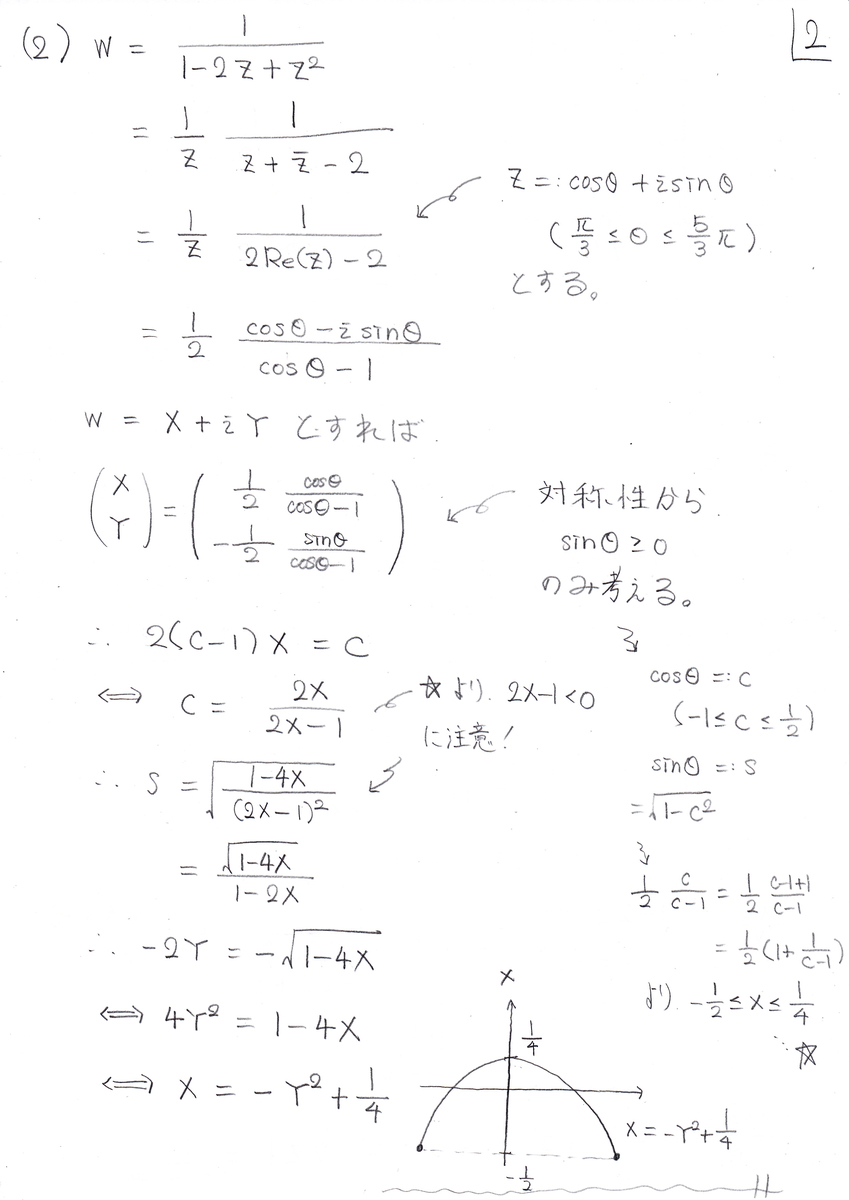 2
(2) W = 1/(1-2z+z²)
= 1/z 1/(z+z̄-2)
= 1/z 1/(2Re(z)-2)
z =: cosθ + i sinθ
(π/3 ≤ θ ≤ 5/3 π)
とする。
= 1/2 (cosθ - i sinθ)/(cosθ - 1)
W = X + iY とすれば
(X Y) = (1/2 cosθ/(cosθ-1) -1/2 sinθ/(cosθ-1))
対称性から
sinθ ≥ 0
のみ考える。
cosθ =: c
(-1 ≤ c ≤ 1/2)
sinθ =: s
= √(1-c²)
1/2 c/(c-1) = 1/2 (c-1+1)/(c-1)
= 1/2 (1 + 1/(c-1))
より -1/2 ≤ X ≤ 1/4
… ☆
∴ 2(c-1)X = c
⇔ c = 2X/(2X-1)
☆より. 2X-1<0
に注意!
∴ s = √((1-4X)/(2X-1)²)
= √(1-4X)/(1-2X)
∴ -2Y = -√(1-4X)
⇔ 4Y² = 1-4X
⇔ X = -Y² + 1/4
X
1/4
X = -Y² + 1/4
-1/2